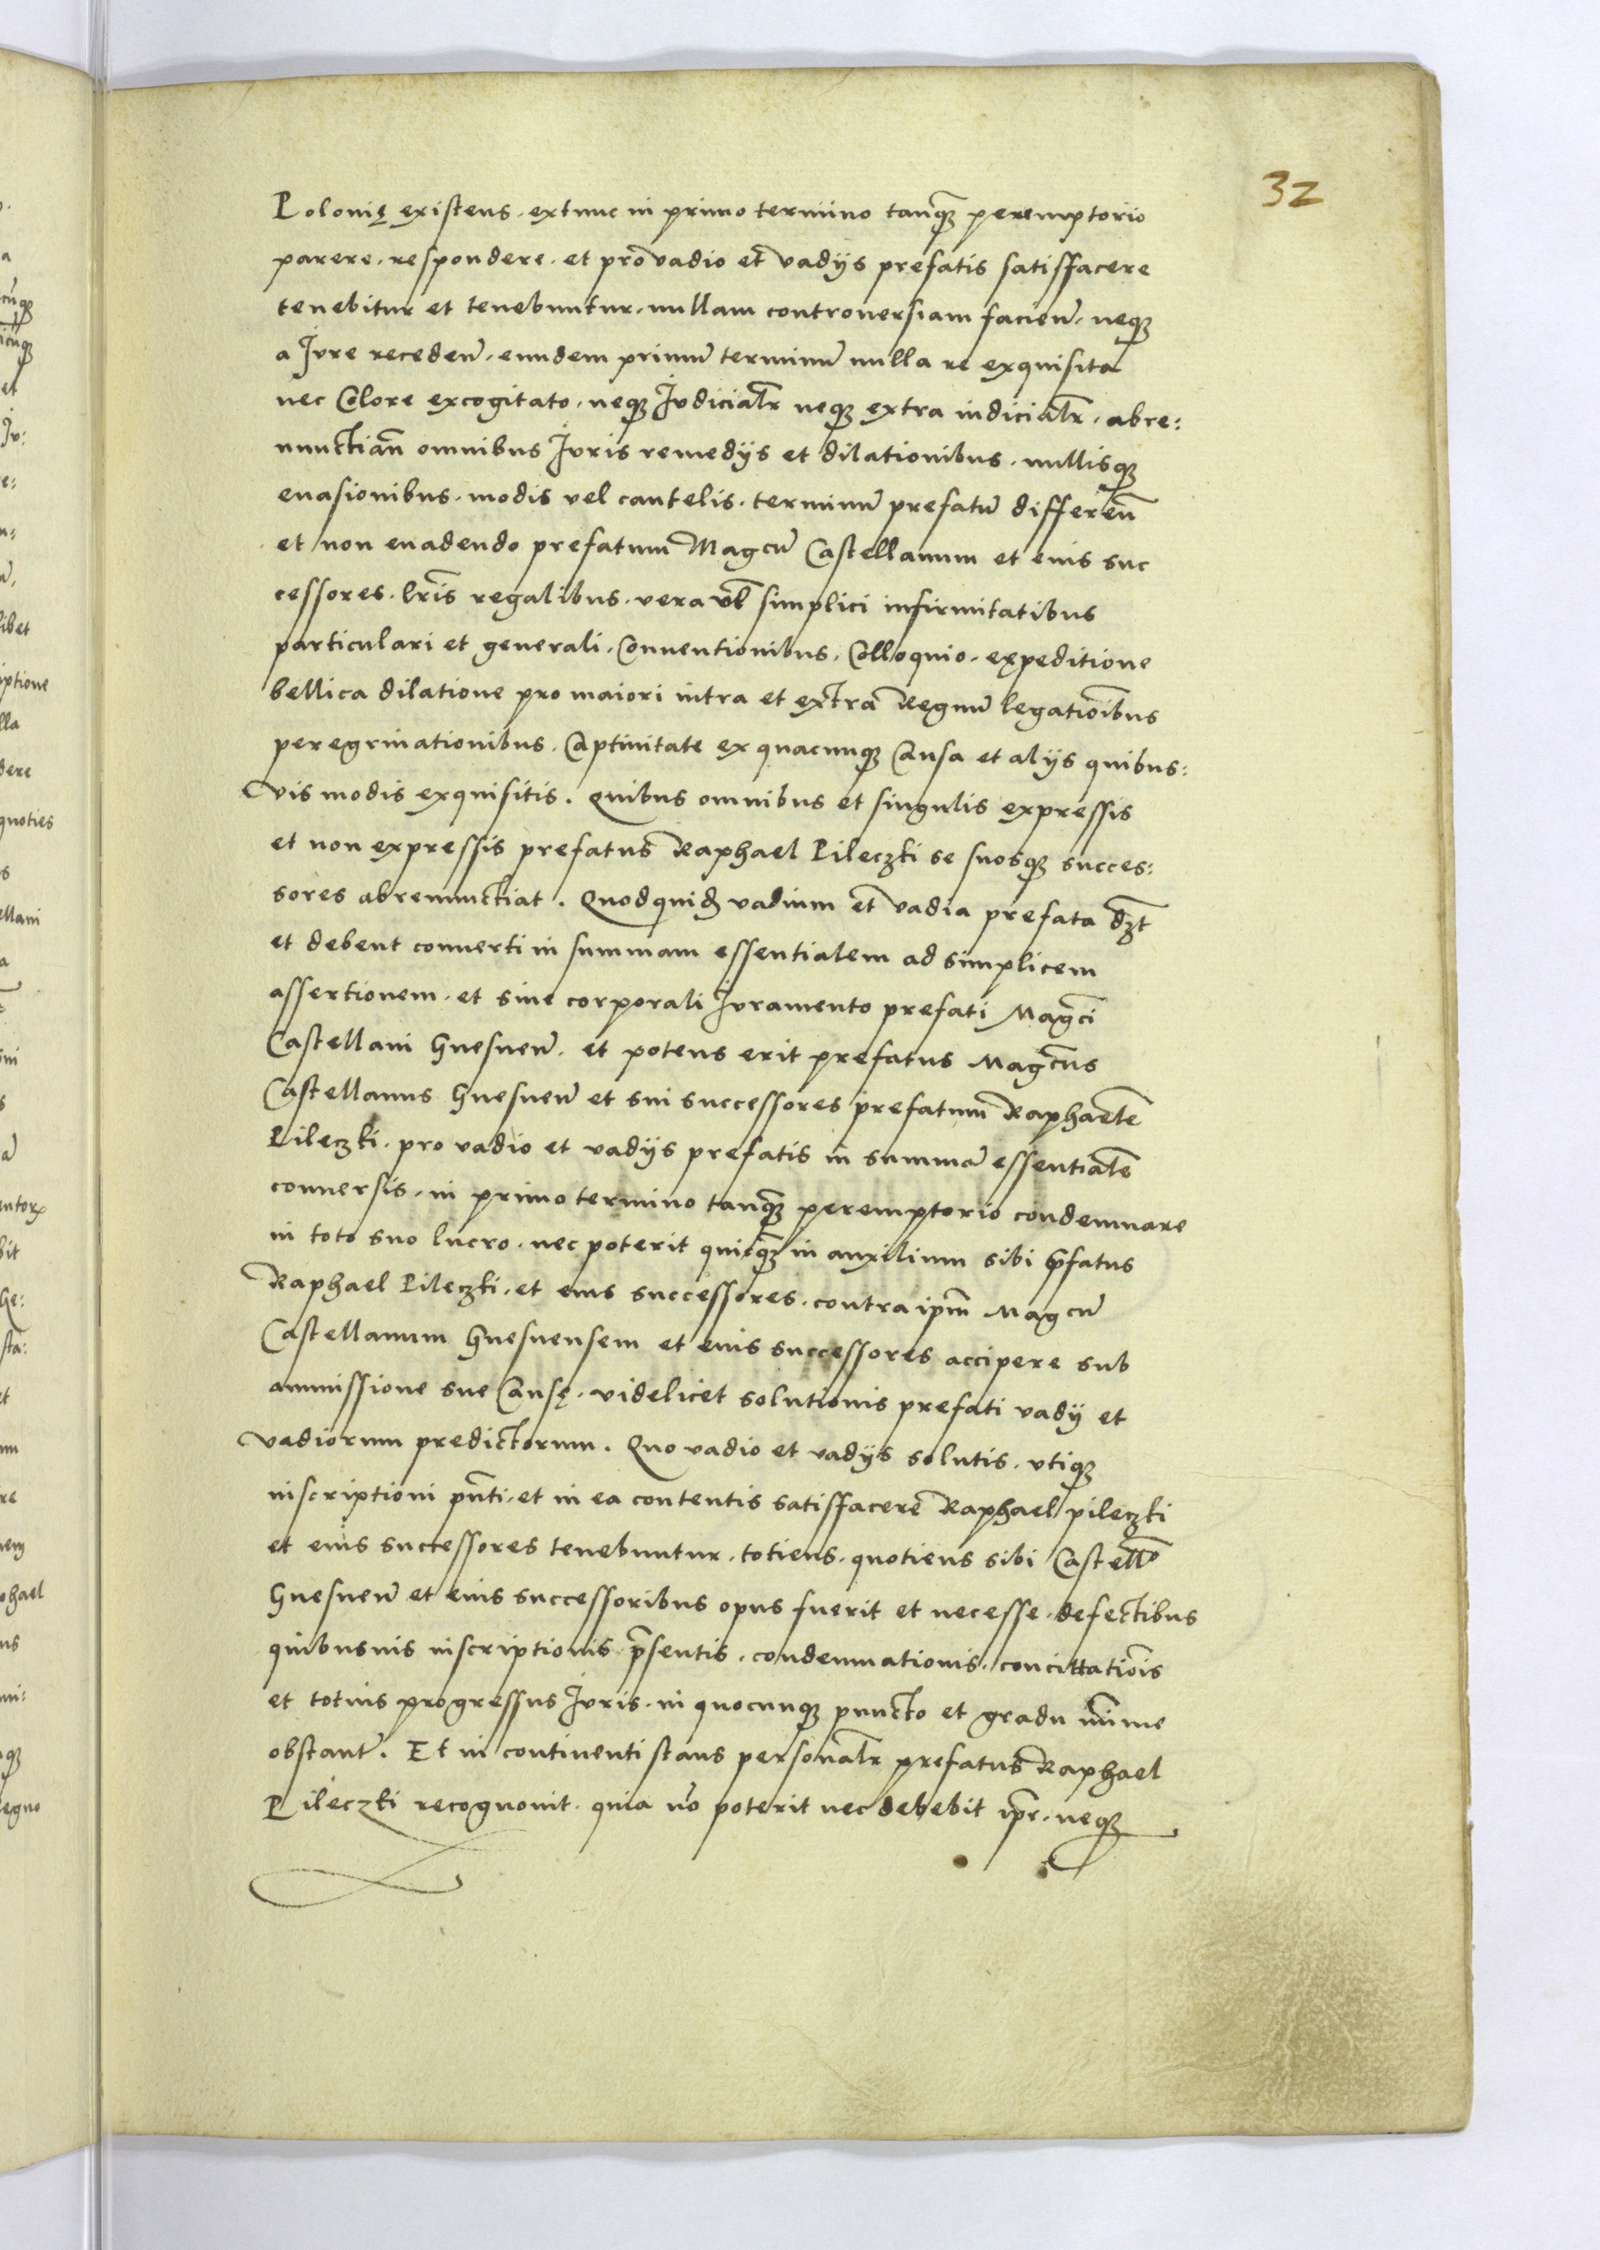 32
Polonię existens. extunc in primo termino tanq̃ꝫ peremptorio
parere. respondere. et pro vadio et vadijs prefatis satisfacere
tenebitur et tenebuntur. nullam controuersiam facieñ. neqꝫ
a Jvre recedeñ. eundem primũ terminũ nulla re exquisita
nec Colore excogitato. neqꝫ Jvdicialr̃ neqꝫ extra iudicialr̃. abre:
nunctiañ omnibus Jvris remedijs et dilationibus. nullisqꝫ
euasionibus. modis vel cautelis. terminũ prefatũ differeñ
et non euadendo prefatum Magcũ Castellanum et eius suc
cessores. lr̃is regalibus. vera vl̃ simplici infirmitatibus
particulari et generali. Conuentionibus. Colloquio. expeditione
bellica dilatione pro maiori intra et extra Regnũ legatiõibus
peregrinationibus. Captiuitate ex quacunqꝫ Causa et alijs quibus:
vis modis exquisitis. Quibus omnibus et singulis expressis
et non expressis prefatus Raphael Pileczki se suosqꝫ succes:
sores abrenunctiat. Quodquidẽ vadium et vadia prefata dꝫt
et debent conuerti in summam essentialem ad simplicem
assertionem. et sine corporali Jvramento prefati Magc̃i
Castellani Gnesneñ. et potens erit prefatus Magc̃us
Castellanus Gnesneñ et sui successores prefatum Raphaelẽ
Pileczki. pro vadio et vadijs prefatis in summã essentialẽ
conuersis. in primo termino tanq̃ꝫ peremptorio condemnare
in toto suo lucro. nec poterit quicq̃ꝫ in auxilium sibi p̃fatus
Raphael Pileczki. et eius successores. contra ipm̃ Magcũ
Castellanum Gnesnensem et eius successores accipere sub
ammissione sue Causę. videlicet solutionis prefati vadij et
vadiorum predictorum. Quo vadio et vadijs solutis. vtiqꝫ
inscriptioni pñti. et in ea contentis satisfacere Raphael pileczki
et eius successores tenebuntur. totiens. quotiens sibi Castellõ
Gnesneñ et eius successoribus opus fuerit et necesse. defectibus
quibusuis inscriptionis p̃sentis. condemnationis. concittatiõis
et totius progressus Jvris. in quocunqꝫ puncto et gradu mĩme
obstantr̃. Et in continenti stans personalr̃ prefatus Raphael
Pileczki recognouit. quia nõ poterit nec debebit ipẽ. neqꝫ